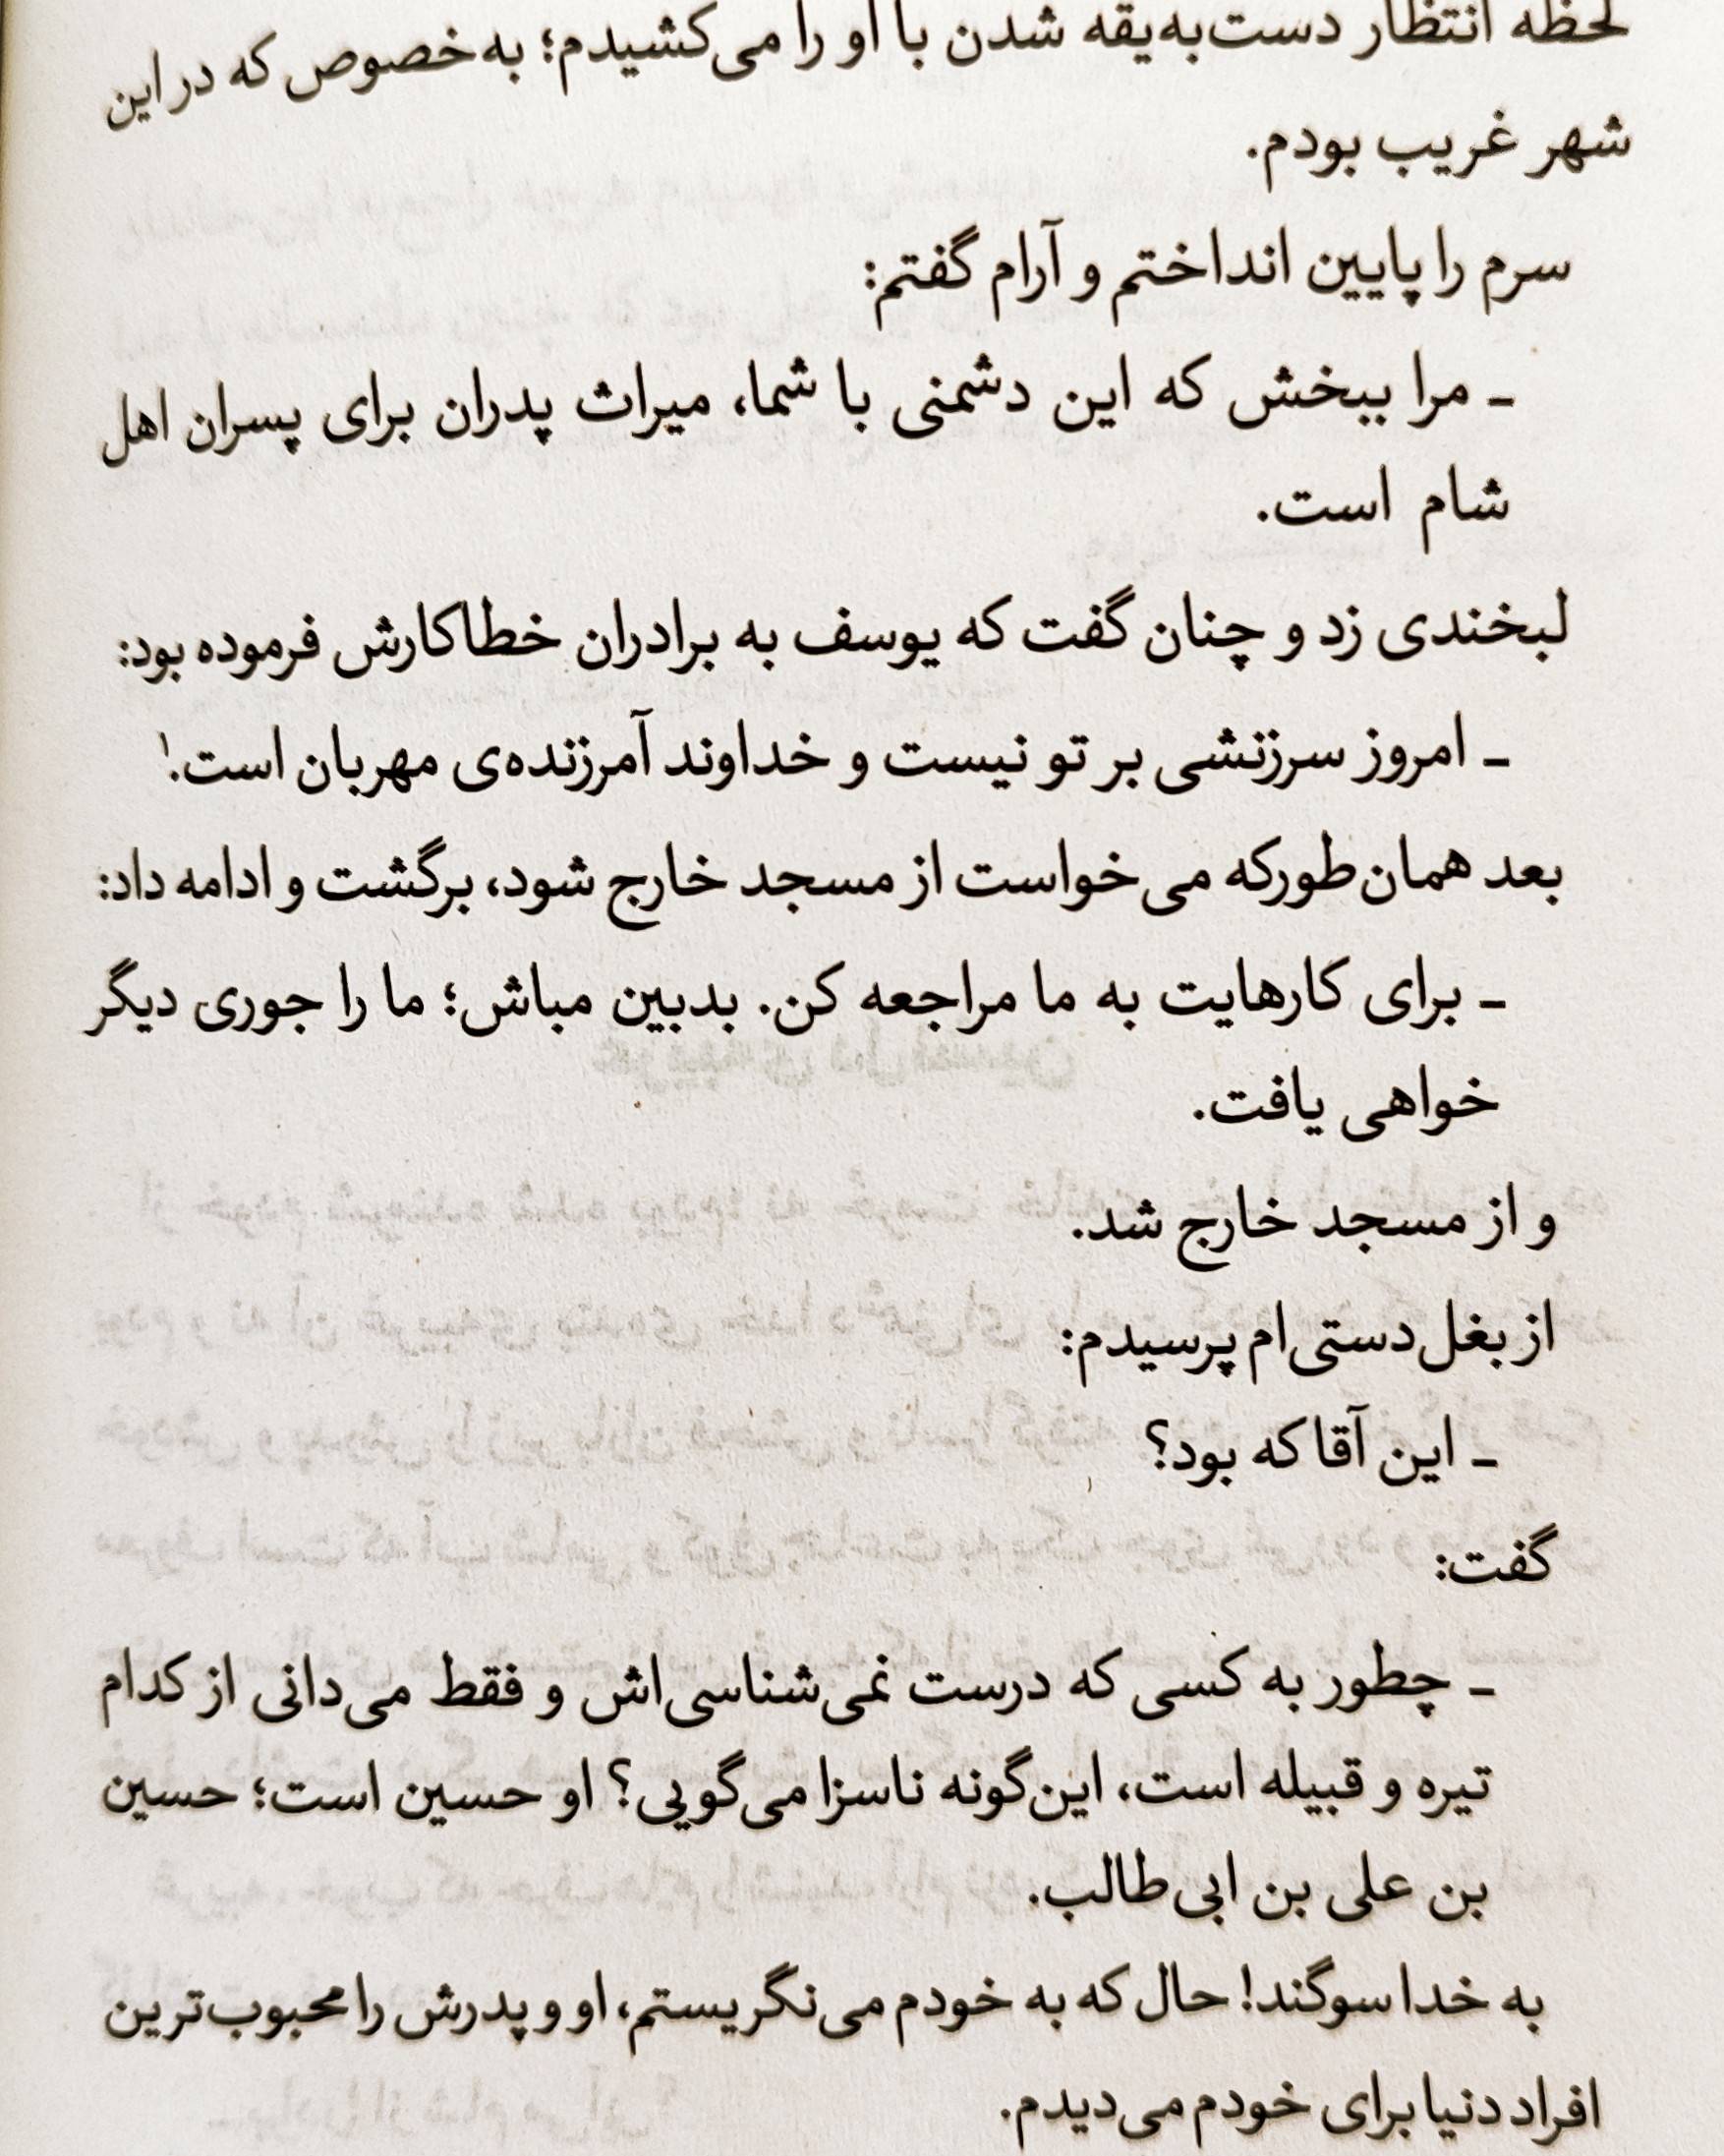 لحظه انتظار دست‌به‌یقه شدن با او را می‌کشیدم؛ به‌خصوص که در این
شهر غریب بودم.
سرم را پایین انداختم و آرام گفتم:
ـ مرا ببخش که این دشمنی با شما، میراث پدران برای پسران اهل
شام است.
لبخندی زد و چنان گفت که یوسف به برادران خطاکارش فرموده بود:
ـ امروز سرزنشی بر تو نیست و خداوند آمرزنده‌ی مهربان است.۱
بعد همان‌طورکه می‌خواست از مسجد خارج شود، برگشت و ادامه داد:
ـ برای کارهایت به ما مراجعه کن. بدبین مباش؛ ما را جوری دیگر
خواهی یافت.
و از مسجد خارج شد.
از بغل‌دستی‌ام پرسیدم:
ـ این آقا که بود؟
گفت:
ـ چطور به کسی که درست نمی‌شناسی‌اش و فقط می‌دانی از کدام
تیره و قبیله است، این‌گونه ناسزا می‌گویی؟ او حسین است؛ حسین
بن علی بن ابی‌طالب.
به خدا سوگند! حال که به خودم می‌نگریستم، او و پدرش را محبوب‌ترین
افراد دنیا برای خودم می‌دیدم.